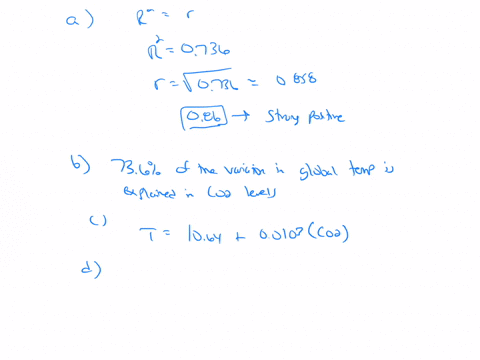 a) R² = r
R² = 0.736
r = √0.736 = 0.858
0.86 → Strong positive
b) 73.6% of the variation in global temp is
explained in CO2 levels
c) T = 10.64 + 0.0107 (CO2)
d)